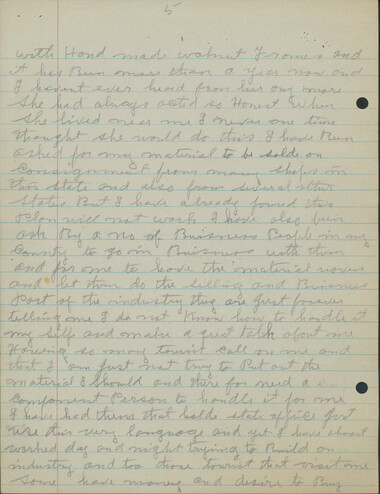 5
with Hand made walnut Fromes and
it has Been more than a year now and
I havent ever heard from her any more
She had always acted so Honest when
She lived near me I never one time
thought she would do this I have Been
asked for my material to be solde on
Consignment from many shops in
this state and also from several other
States But I have already found this
Plan will not work I have also been
ask By a no of Buisness People in my
County to go in Buisness with them
and for me to have the material woven
and let them do the selling and Buisness
Part of the industry they are just forever
telling me I do not Know how to handle it
my self and make a great talk about me
Having so many tourist call on me and
that I am just not trying to Put out the
material I should and there for need a
Component Person to handle it for me
I have had them that holds state office just
use this very language and yet I have about
worked day and night trying to Build an
industry and too those tourist that visit me
some have money and desire to Buy